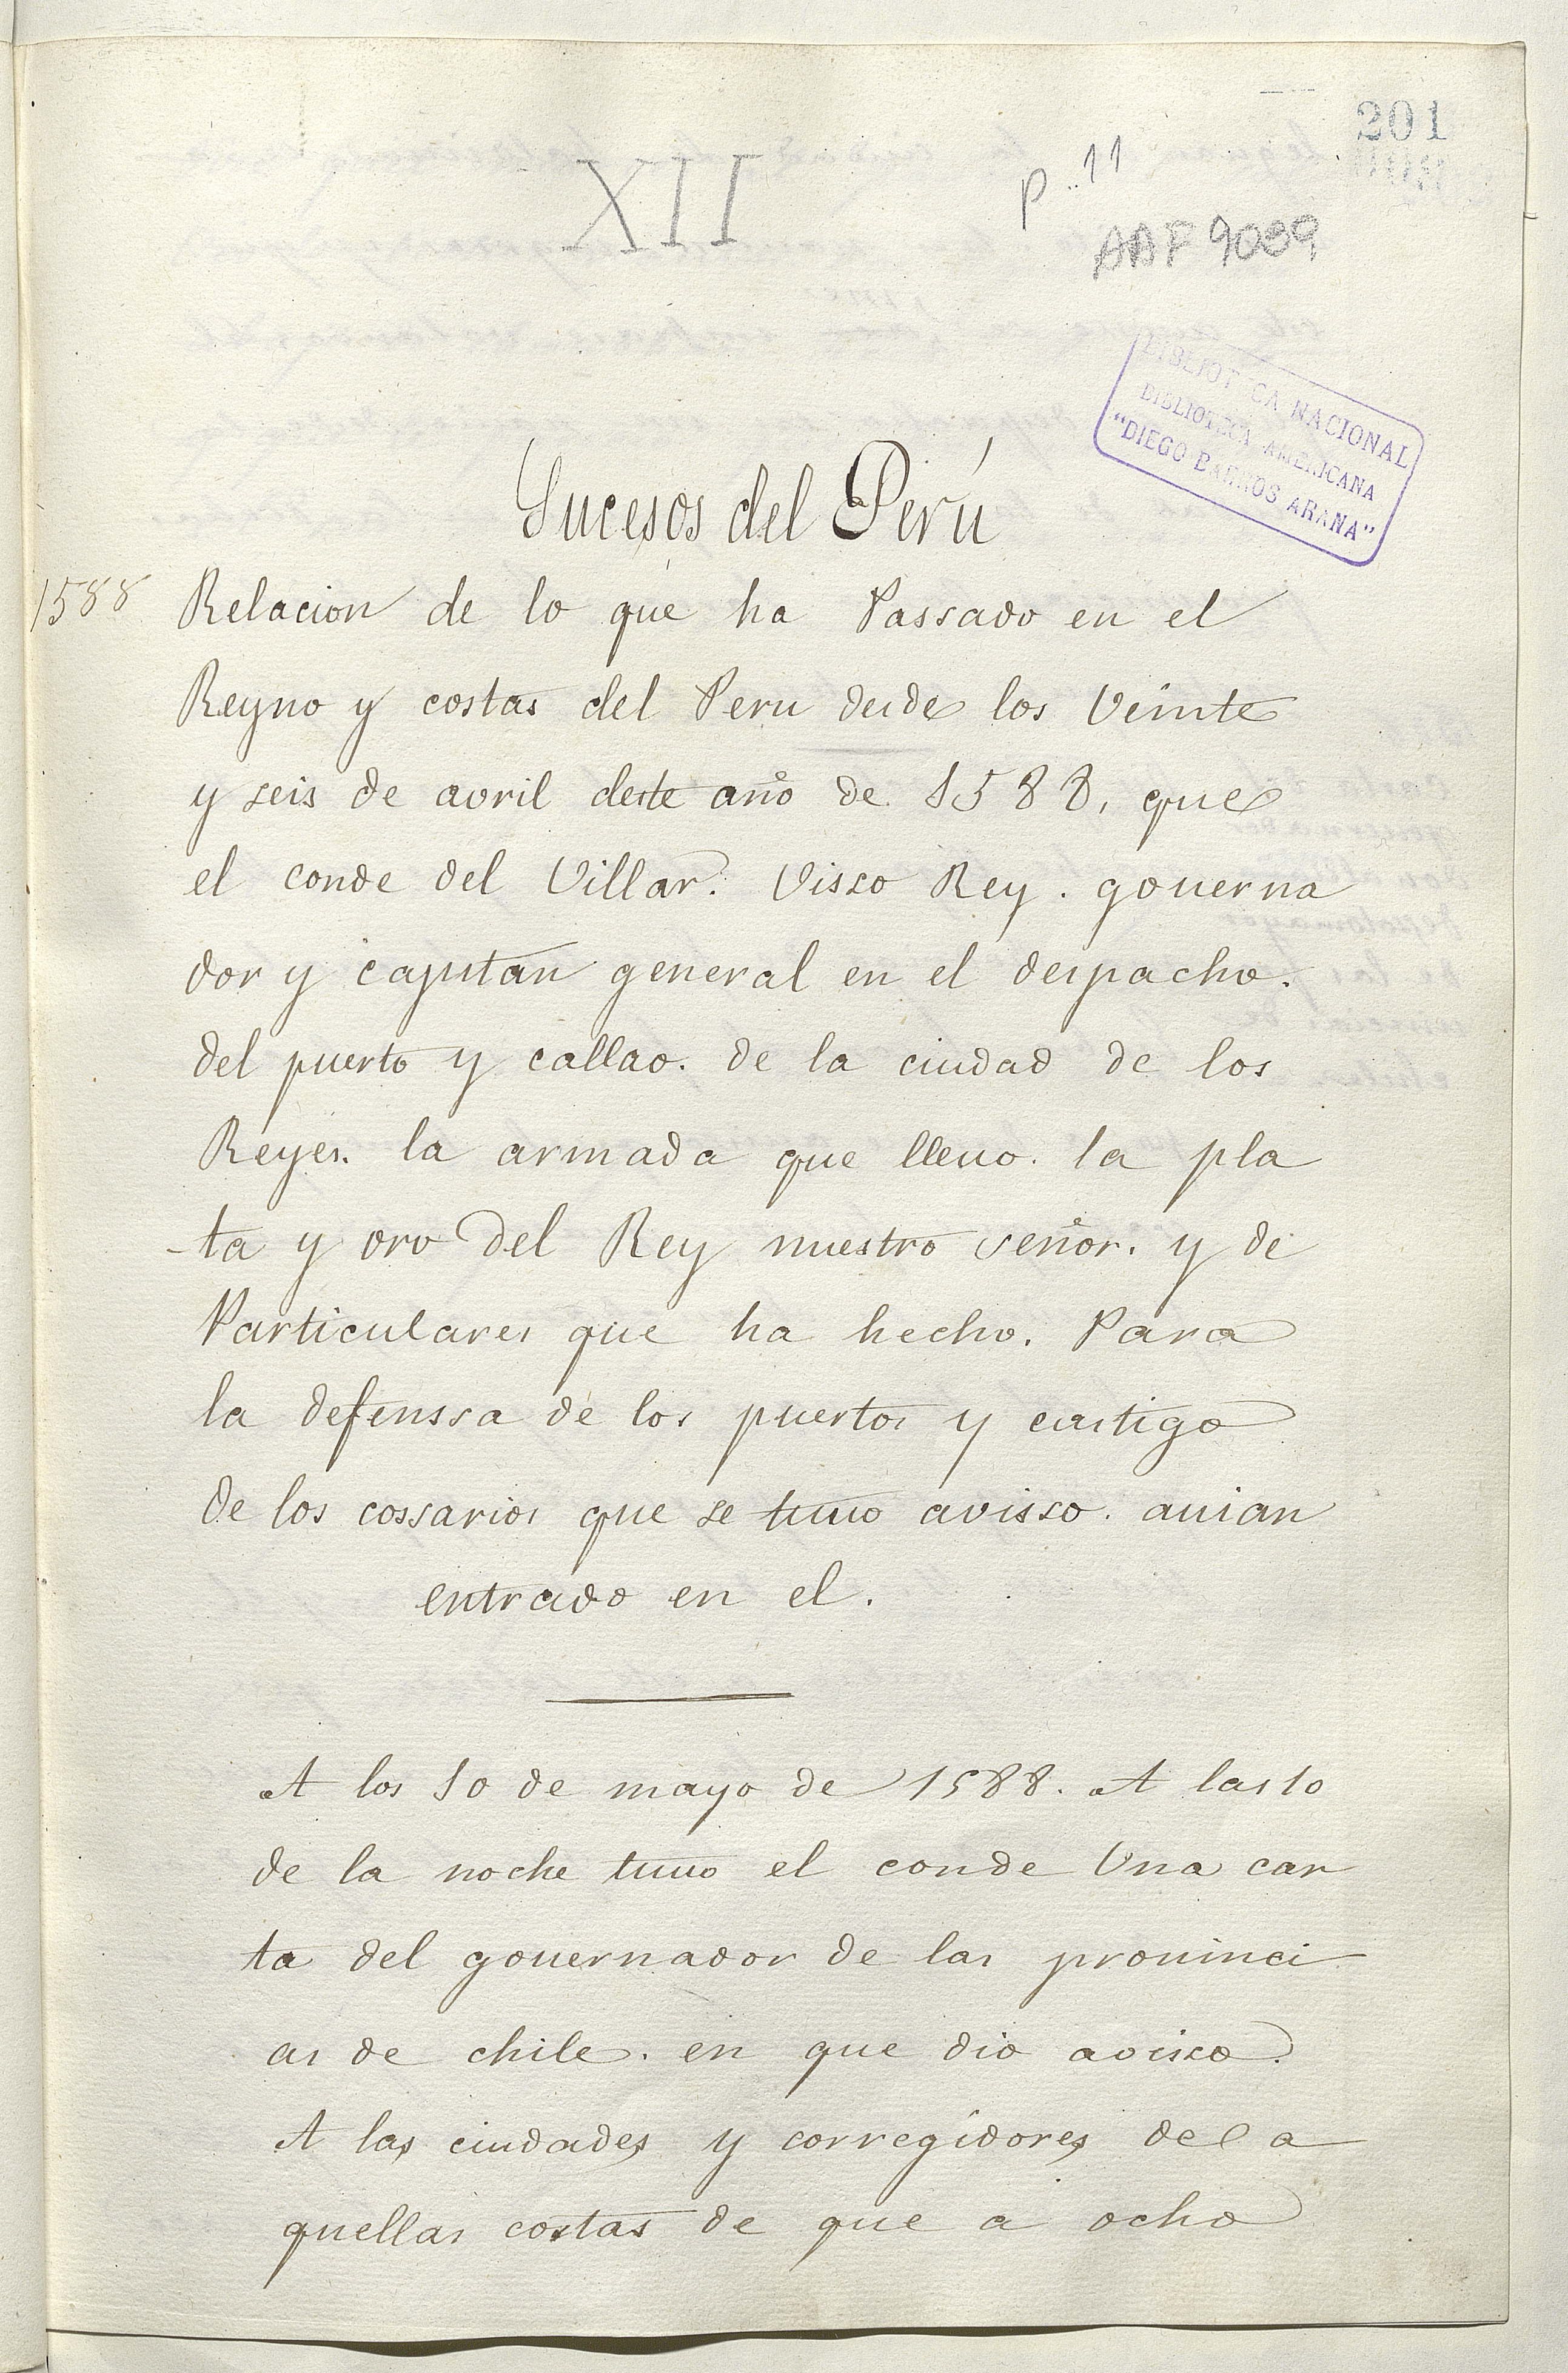 201
XII
p. 11
AAF 9089
BIBLIOTECA NACIONAL
BIBLIOTECA AMERICANA
"DIEGO BARROS ARANA"
Sucesos del Perú
1588
Relacion de lo que ha Passado en el
Reyno y costas del Peru desde los Veinte
y seis de avril deste año de 1588, que
el conde del Villar. Visso Rey. gouerna
dor y capitan general en el despacho.
del puerto y callao. de la ciudad de los
Reyes. la armada que lleuo. la pla
ta y oro del Rey nuestro señor. y de
Particulares que ha hecho. Para
la defenssa de los puertos y castigo
de los cossarios que se tuuo avisso. auian
entrado en el.
A los 10 de mayo de 1588. A las 10
de la noche tuuo el conde Una car
ta del gouernador de las prouinci
as de chile. en que dio avisso.
A las ciudades y corregidores de a
quellas costas de que a ocho